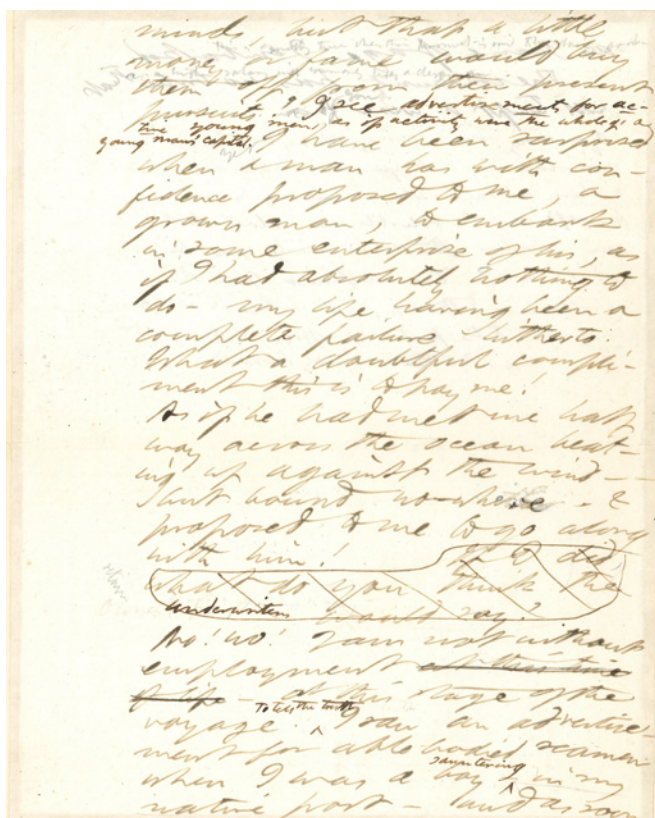 minds, but that a little
money or fame would buy
them off from their present
pursuit. I see advertisements for ac-
tive young men, as if activity were the whole of a
young man's capital.
I have been surprised
when a man has with con-
fidence proposed to me, a
grown man, to embark
in some enterprise of his, as
if I had absolutely nothing to
do - my life having been a
complete failure hitherto.
What a doubtful compli-
ment this is to pay me!
As if he had met me half
way across the ocean beat-
ing up against the wind -
but bound no-where - &
proposed to me to go along
with him! If I did,
what do you think the
underwriters would say?
No! no! I am not without
employment at this time
of life - at this stage of the
voyage. To tell the truth, I saw an advertise-
ment for able bodied seamen
when I was a boy sauntering in my
native port - and as soon